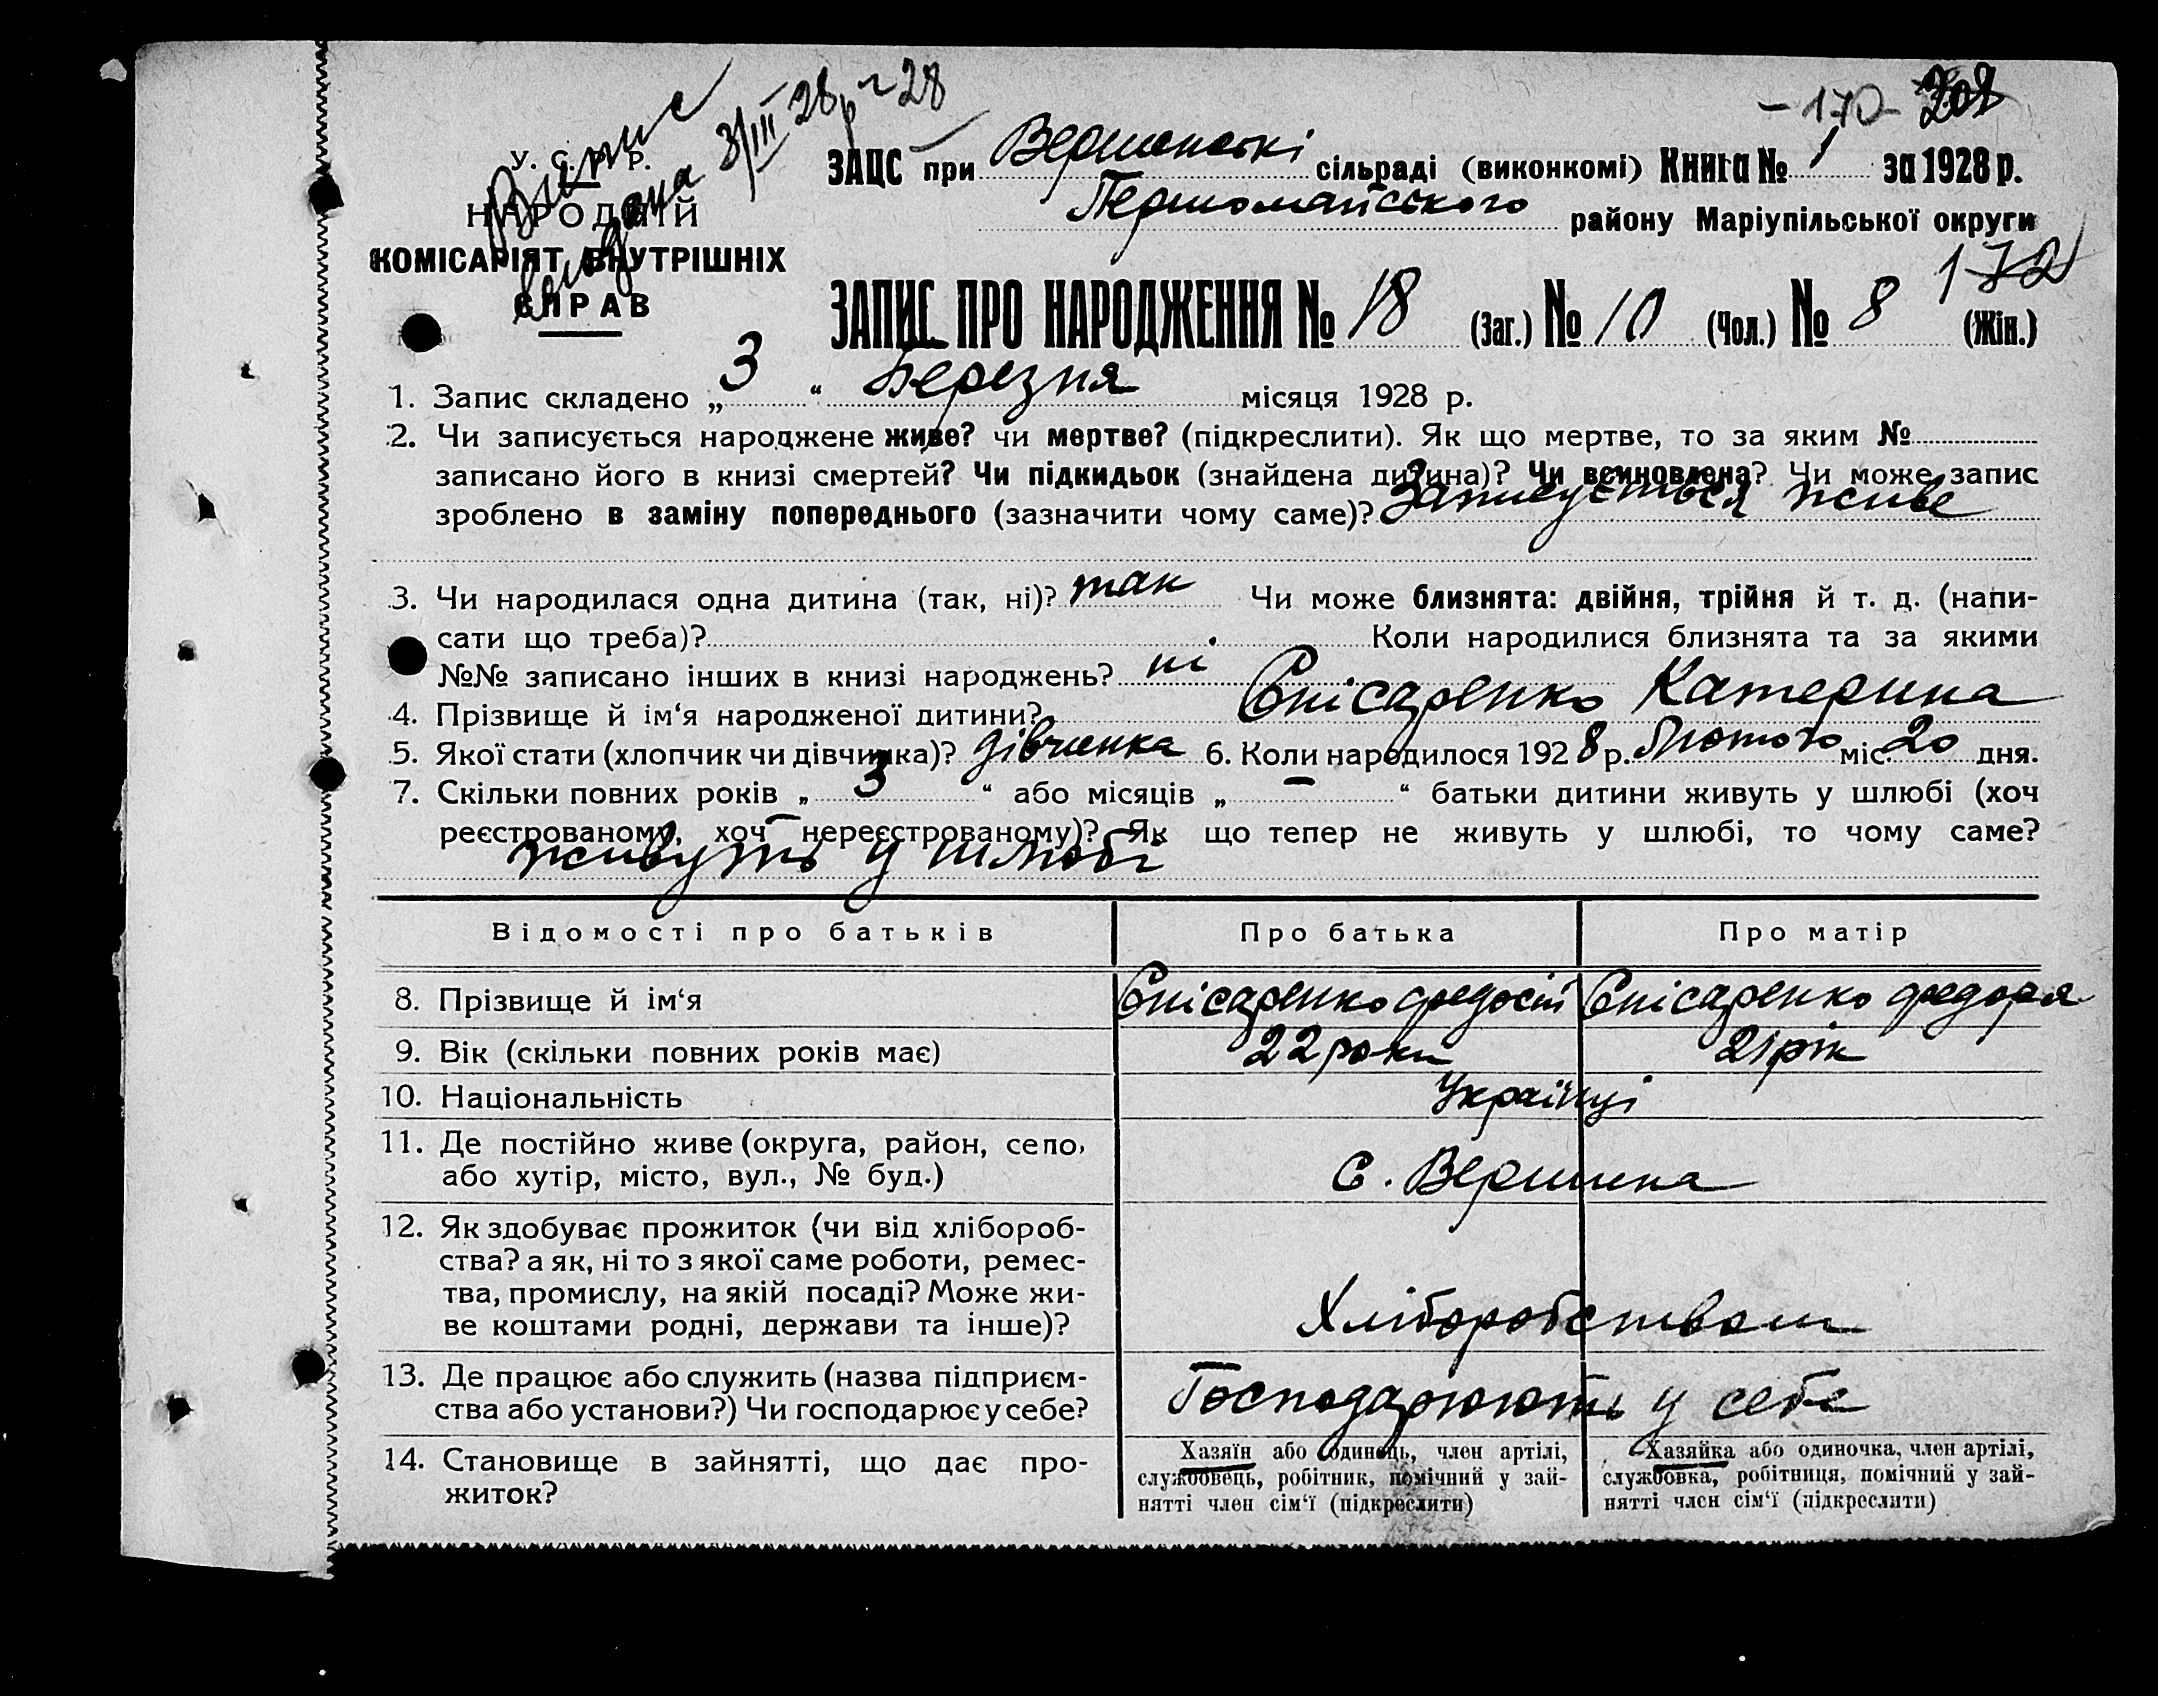 -170- 208
Випис
видана 3/III 28р. № 28
У. С. Р. Р.
НАРОДНІЙ
КОМІСАРІЯТ ВНУТРІШНІХ
СПРАВ
ЗАЦС при Вершинські сільраді (виконкомі) Книга № 1 за 1928 р.
Першомайського району Маріупільської округи
172
ЗАПИС ПРО НАРОДЖЕННЯ № 18 (Заг.) № 10 (Чол.) № 8 (Жін.)
1. Запис складено „ 3 “ Березня місяця 1928 р.
2. Чи записується народжене живе? чи мертве? (підкреслити). Як що мертве, то за яким №
записано його в книзі смертей? Чи підкидьок (знайдена дитина)? Чи всиновлена? Чи може запис
зроблено в заміну попереднього (зазначити чому саме)? Записується живе
3. Чи народилася одна дитина (так, ні)? так Чи може близнята: двійня, трійня й т. д. (напи-
сати що треба)? Коли народилися близнята та за якими
№№ записано інших в книзі народжень? ні
4. Прізвище й ім‘я народженої дитини? Снісаренко Катерина
5. Якої стати (хлопчик чи дівчинка)? дівченка 6. Коли народилося 1928 р. Лютого міс. 20 дня.
7. Скільки повних років „ 3 “ або місяців „ — “ батьки дитини живуть у шлюбі (хоч
реєстрованому, хоч нереєстрованому)? Як що тепер не живуть у шлюбі, то чому саме?
живуть у шлюбі
Відомості про батьків Про батька Про матір
8. Прізвище й ім‘я Снісаренко Федосій Снісаренко Федора
9. Вік (скільки повних років має) 22 роки 21 рік
10. Національність Українці
11. Де постійно живе (округа, район, село,
або хутір, місто, вул., № буд.) С. Вершина
12. Як здобуває прожиток (чи від хлібороб-
ства? а як, ні то з якої саме роботи, ремес-
тва, промислу, на якій посаді? Може жи-
ве коштами родні, держави та інше)? Хліборобством
13. Де працює або служить (назва підприєм-
ства або установи?) Чи господарює у себе? Господарюють у себе
14. Становище в зайнятті, що дає про-
житок?
Хазяїн або одинець, член артілі,
службовець, робітник, помічний у зай-
нятті член сім‘ї (підкреслити)
Хазяйка або одиночка, член артілі,
службовка, робітниця, помічний у зай-
нятті член сім‘ї (підкреслити)